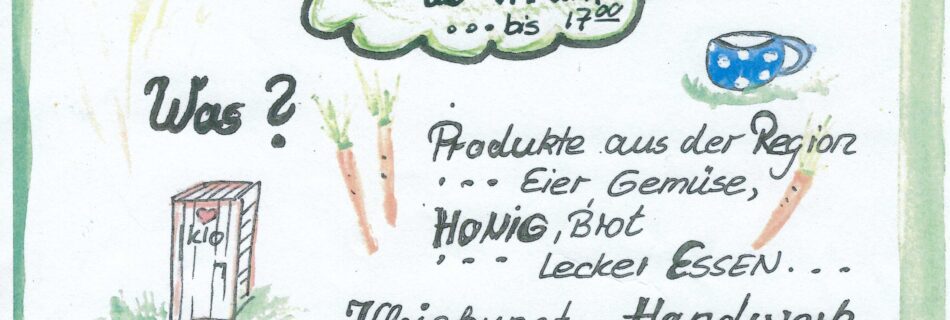 ...bis 17⁰⁰
Was?
Produkte aus der Region
... Eier, Gemüse,
HONIG, Brot
... Lecker ESSEN...
klo
Handwerk